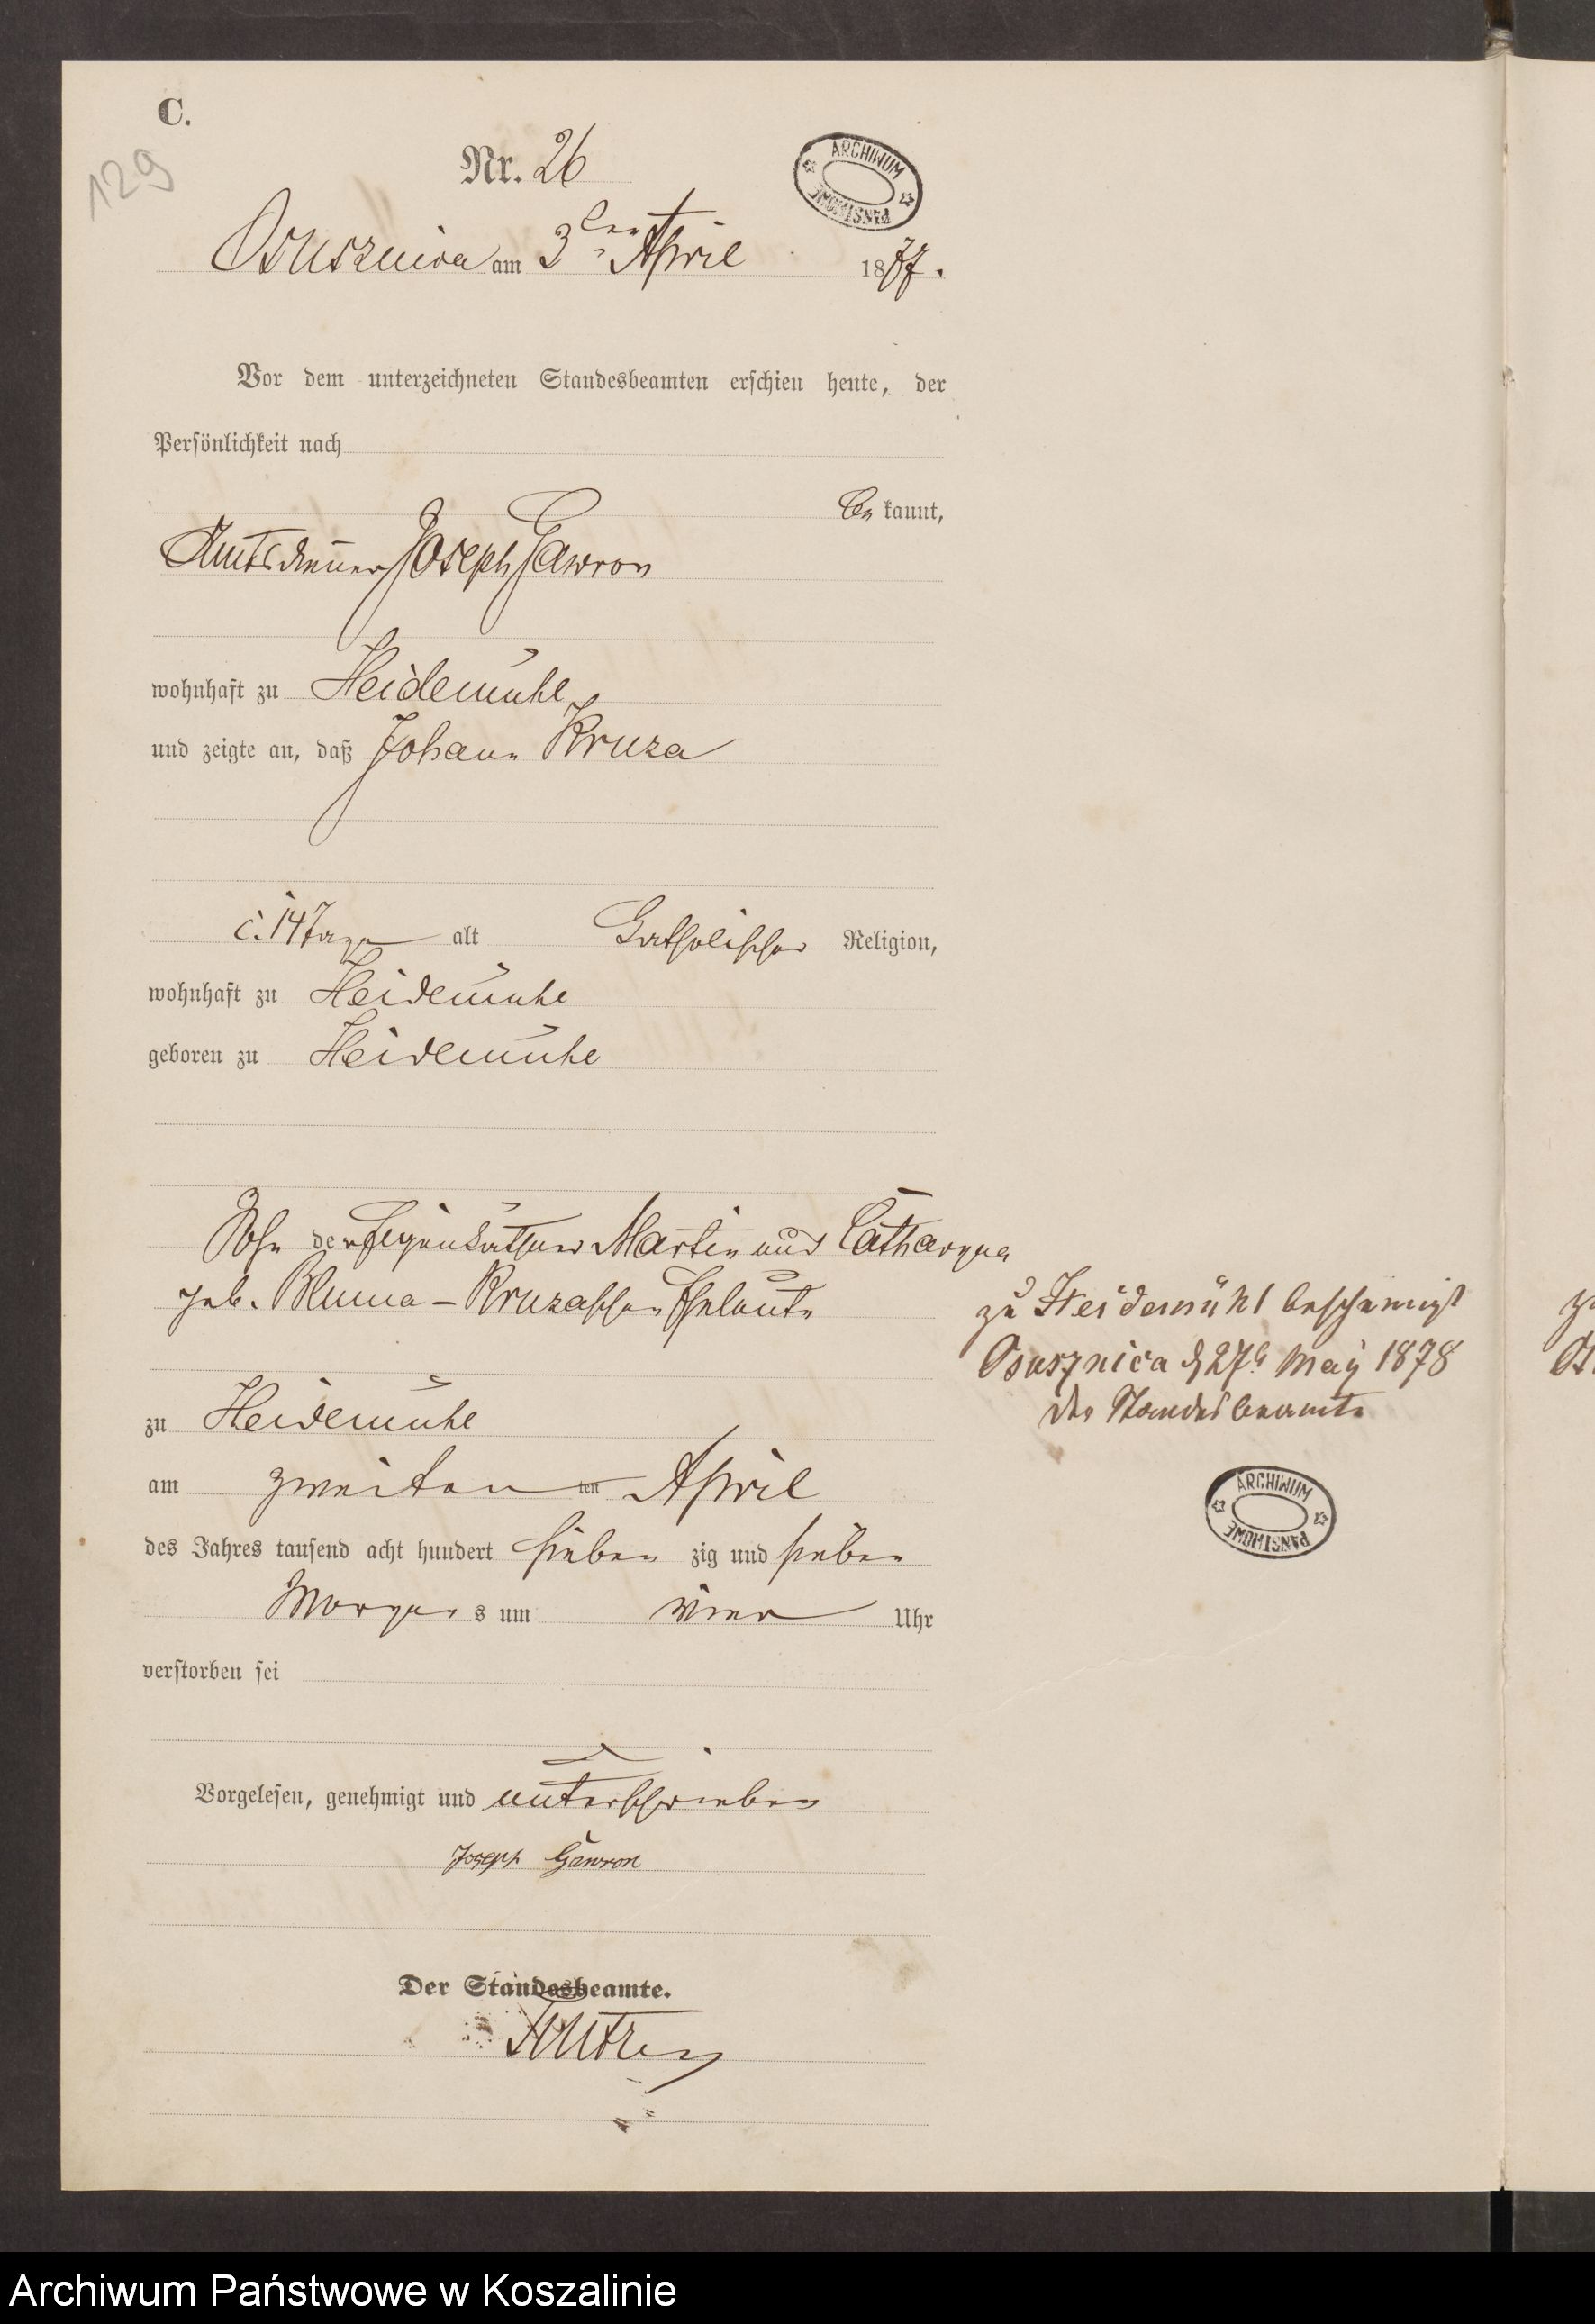 C.
129
Nr. 26
ARCHIWUM PAŃSTWOWE
Osusznica am 3ten April 1877.
Vor dem unterzeichneten Standesbeamten erschien heute, der
Persönlichkeit nach
be kannt,
Amtsdiener Joseph Gawron
wohnhaft zu Heidemühl
und zeigte an, daß Johann Kruza
c. 14 Tage alt Catholischer Religion,
wohnhaft zu Heidemühl
geboren zu Heidemühl
Sohn der Eigenkäthner Martin und Catharyna
geb. Kruzaschen Eheleute
zu Heidemühl bescheinigt
Osusznica d 27t May 1878
der Standesbeamte
zu Heidemühl
am zweiten ten April
des Jahres tausend acht hundert sieben zig und sieben
Morgen s um vier Uhr
verstorben sei
ARCHIWUM PAŃSTWOWE
Vorgelesen, genehmigt und unterschrieben
Joseph Gawron
Der Standesbeamte.
Archiwum Państwowe w Koszalinie